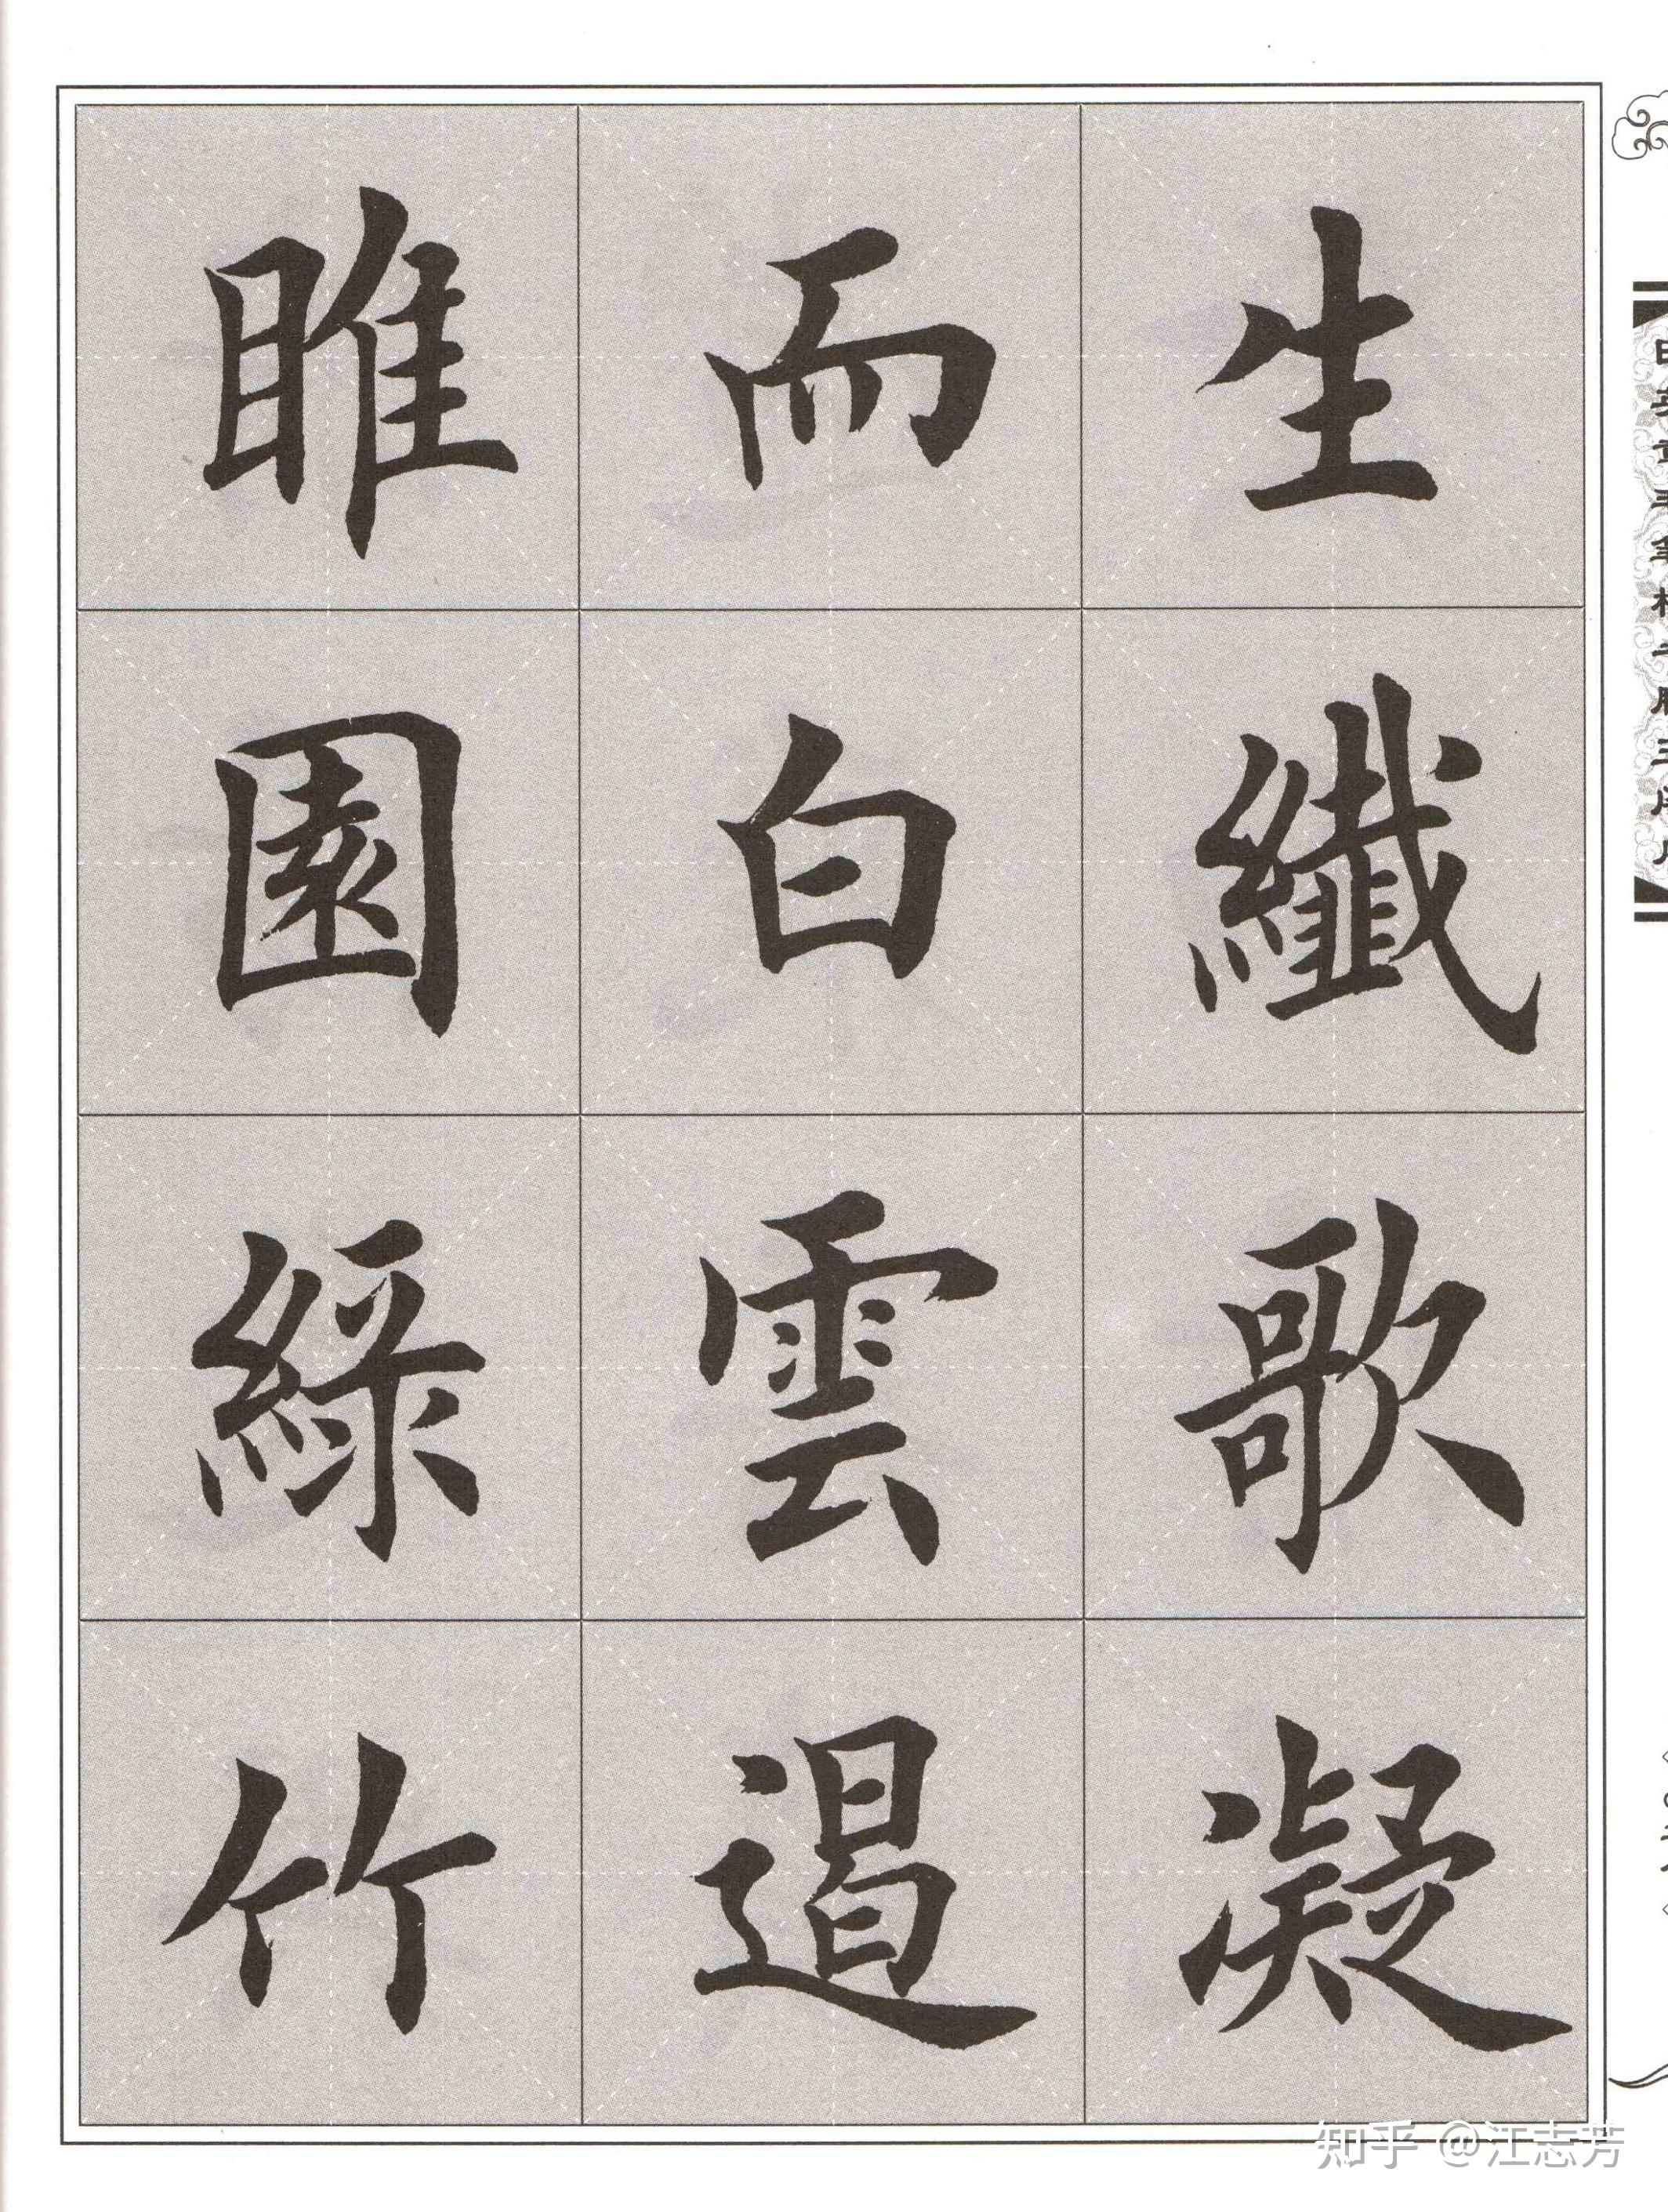 生纖歌凝
而白雲遏
睢園綠竹
知乎 @江志芳